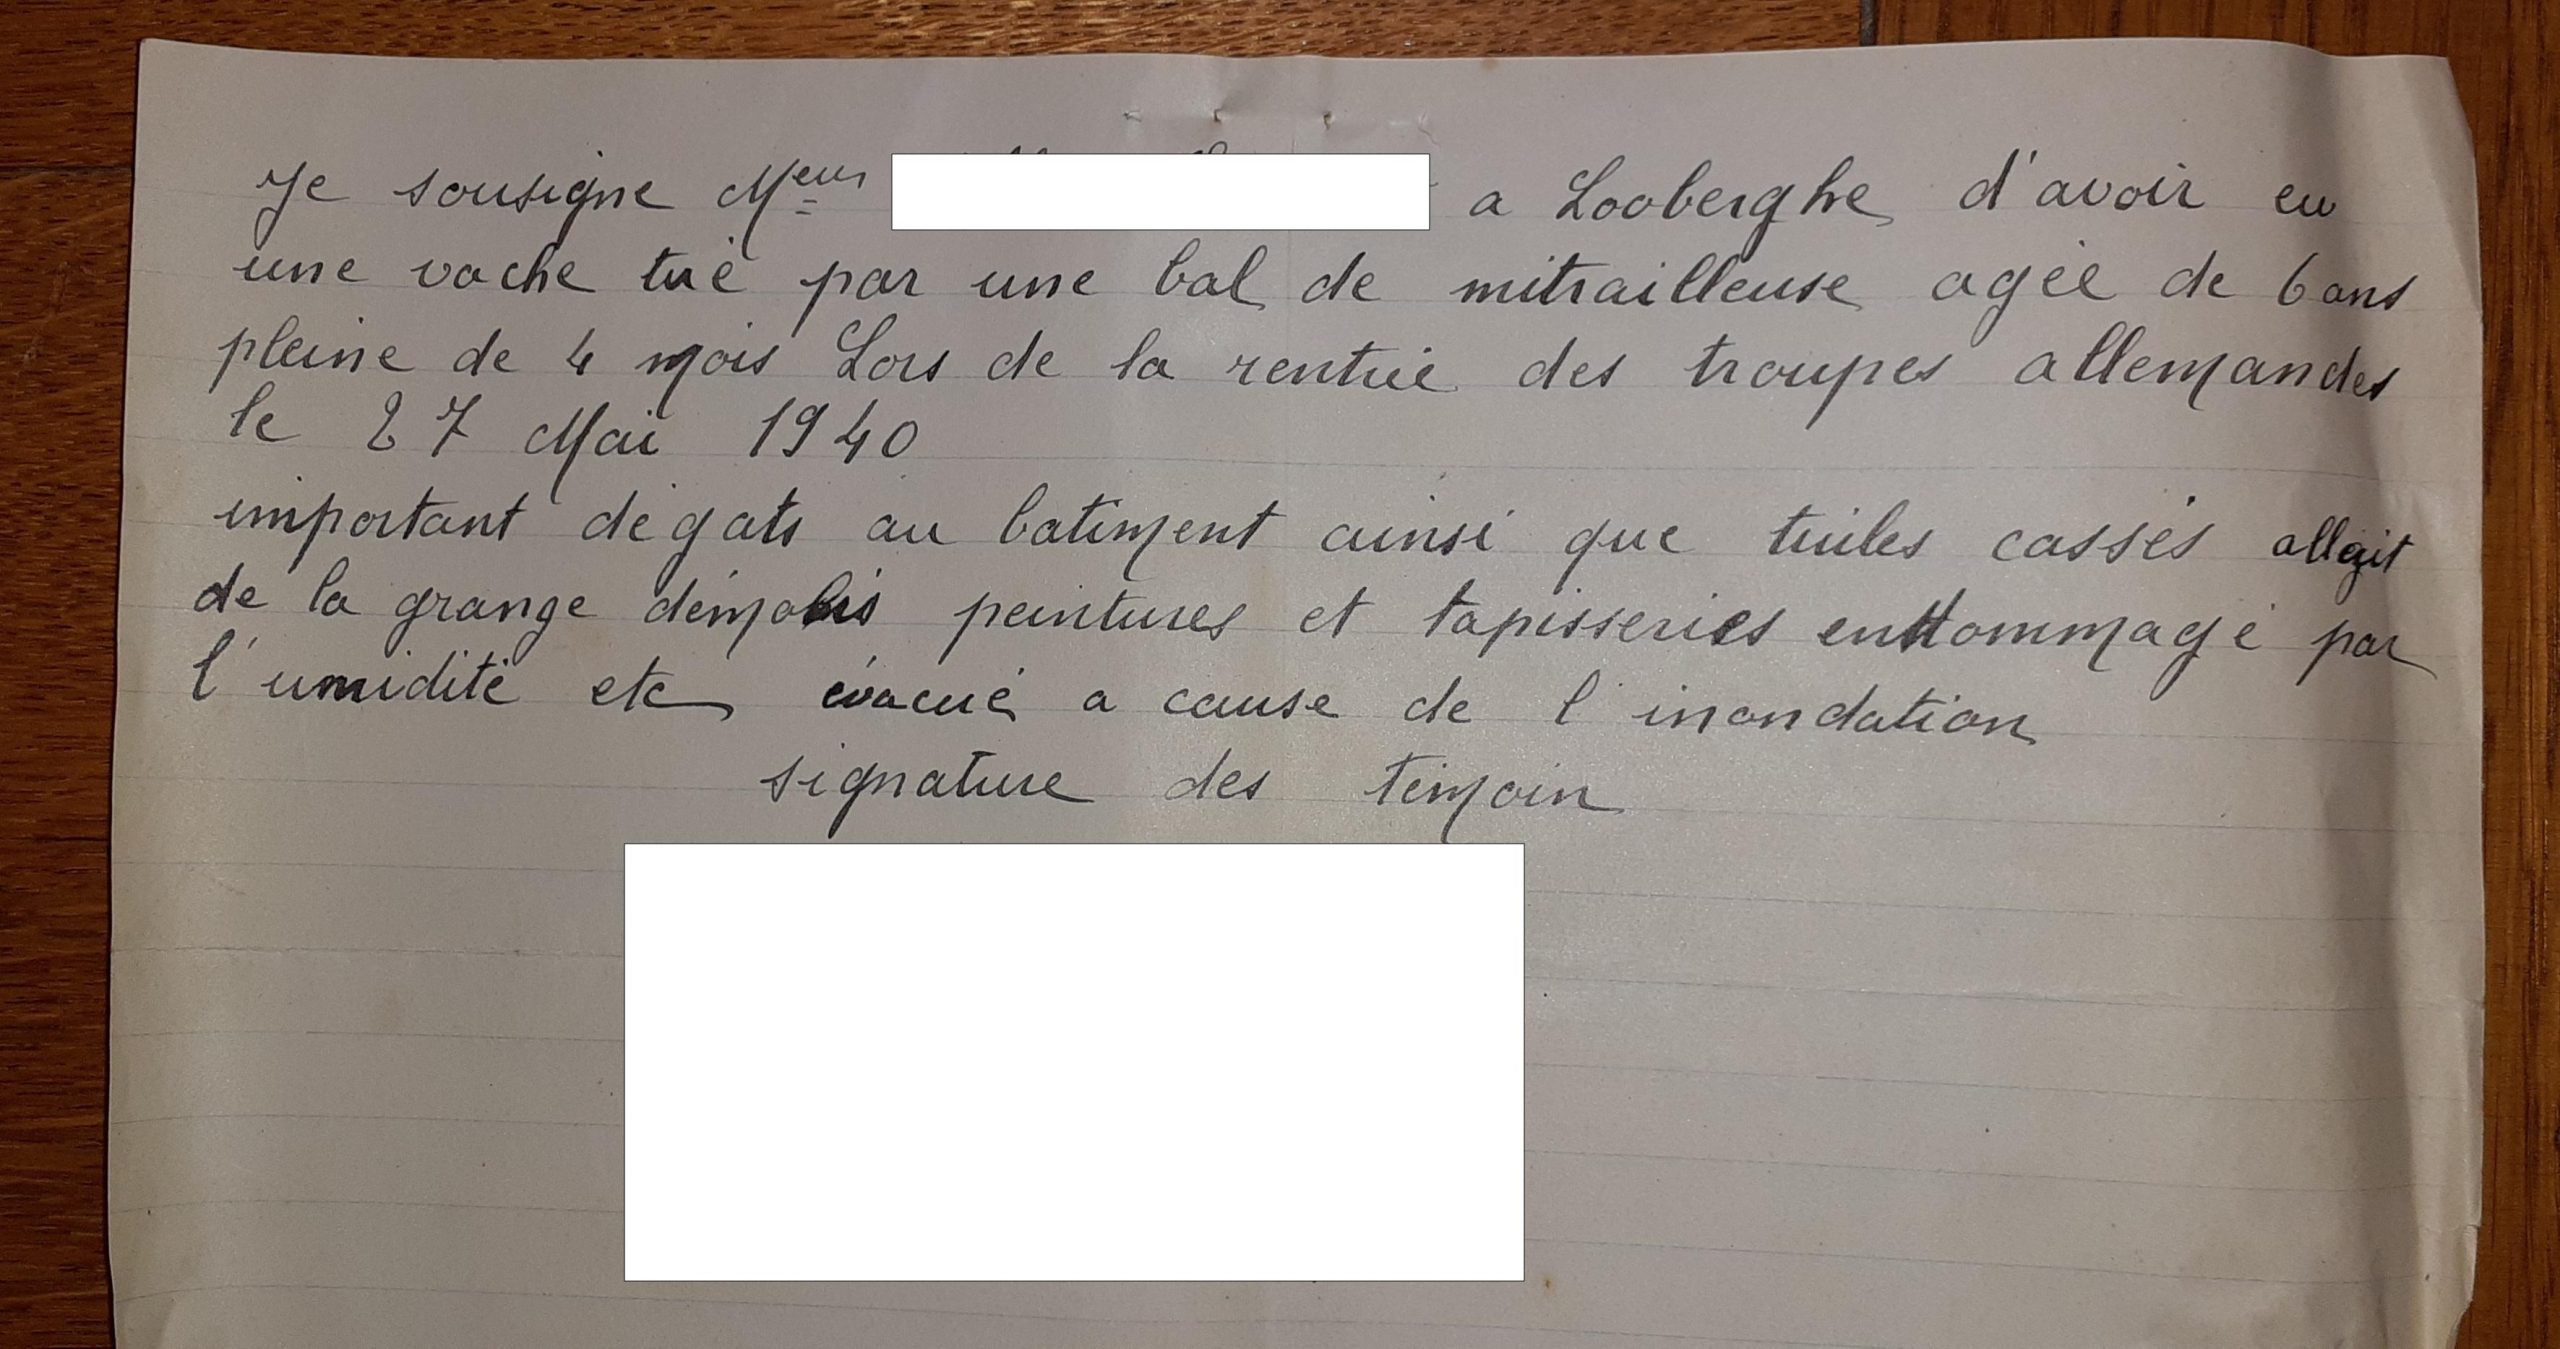 Je sousigne Meur a Looberghe d'avoir eu
une vache tué par une bal de mitrailleuse agée de 6 ans
pleine de 4 mois Lors de la rentrée des troupes allemandes
le 27 Mai 1940
important dégats au batiment ainsi que tuiles cassés
de la grange démolis peintures et tapisseries enttommagé par
l'umidité etc évacué a cause de l'inondation
signature des témoin